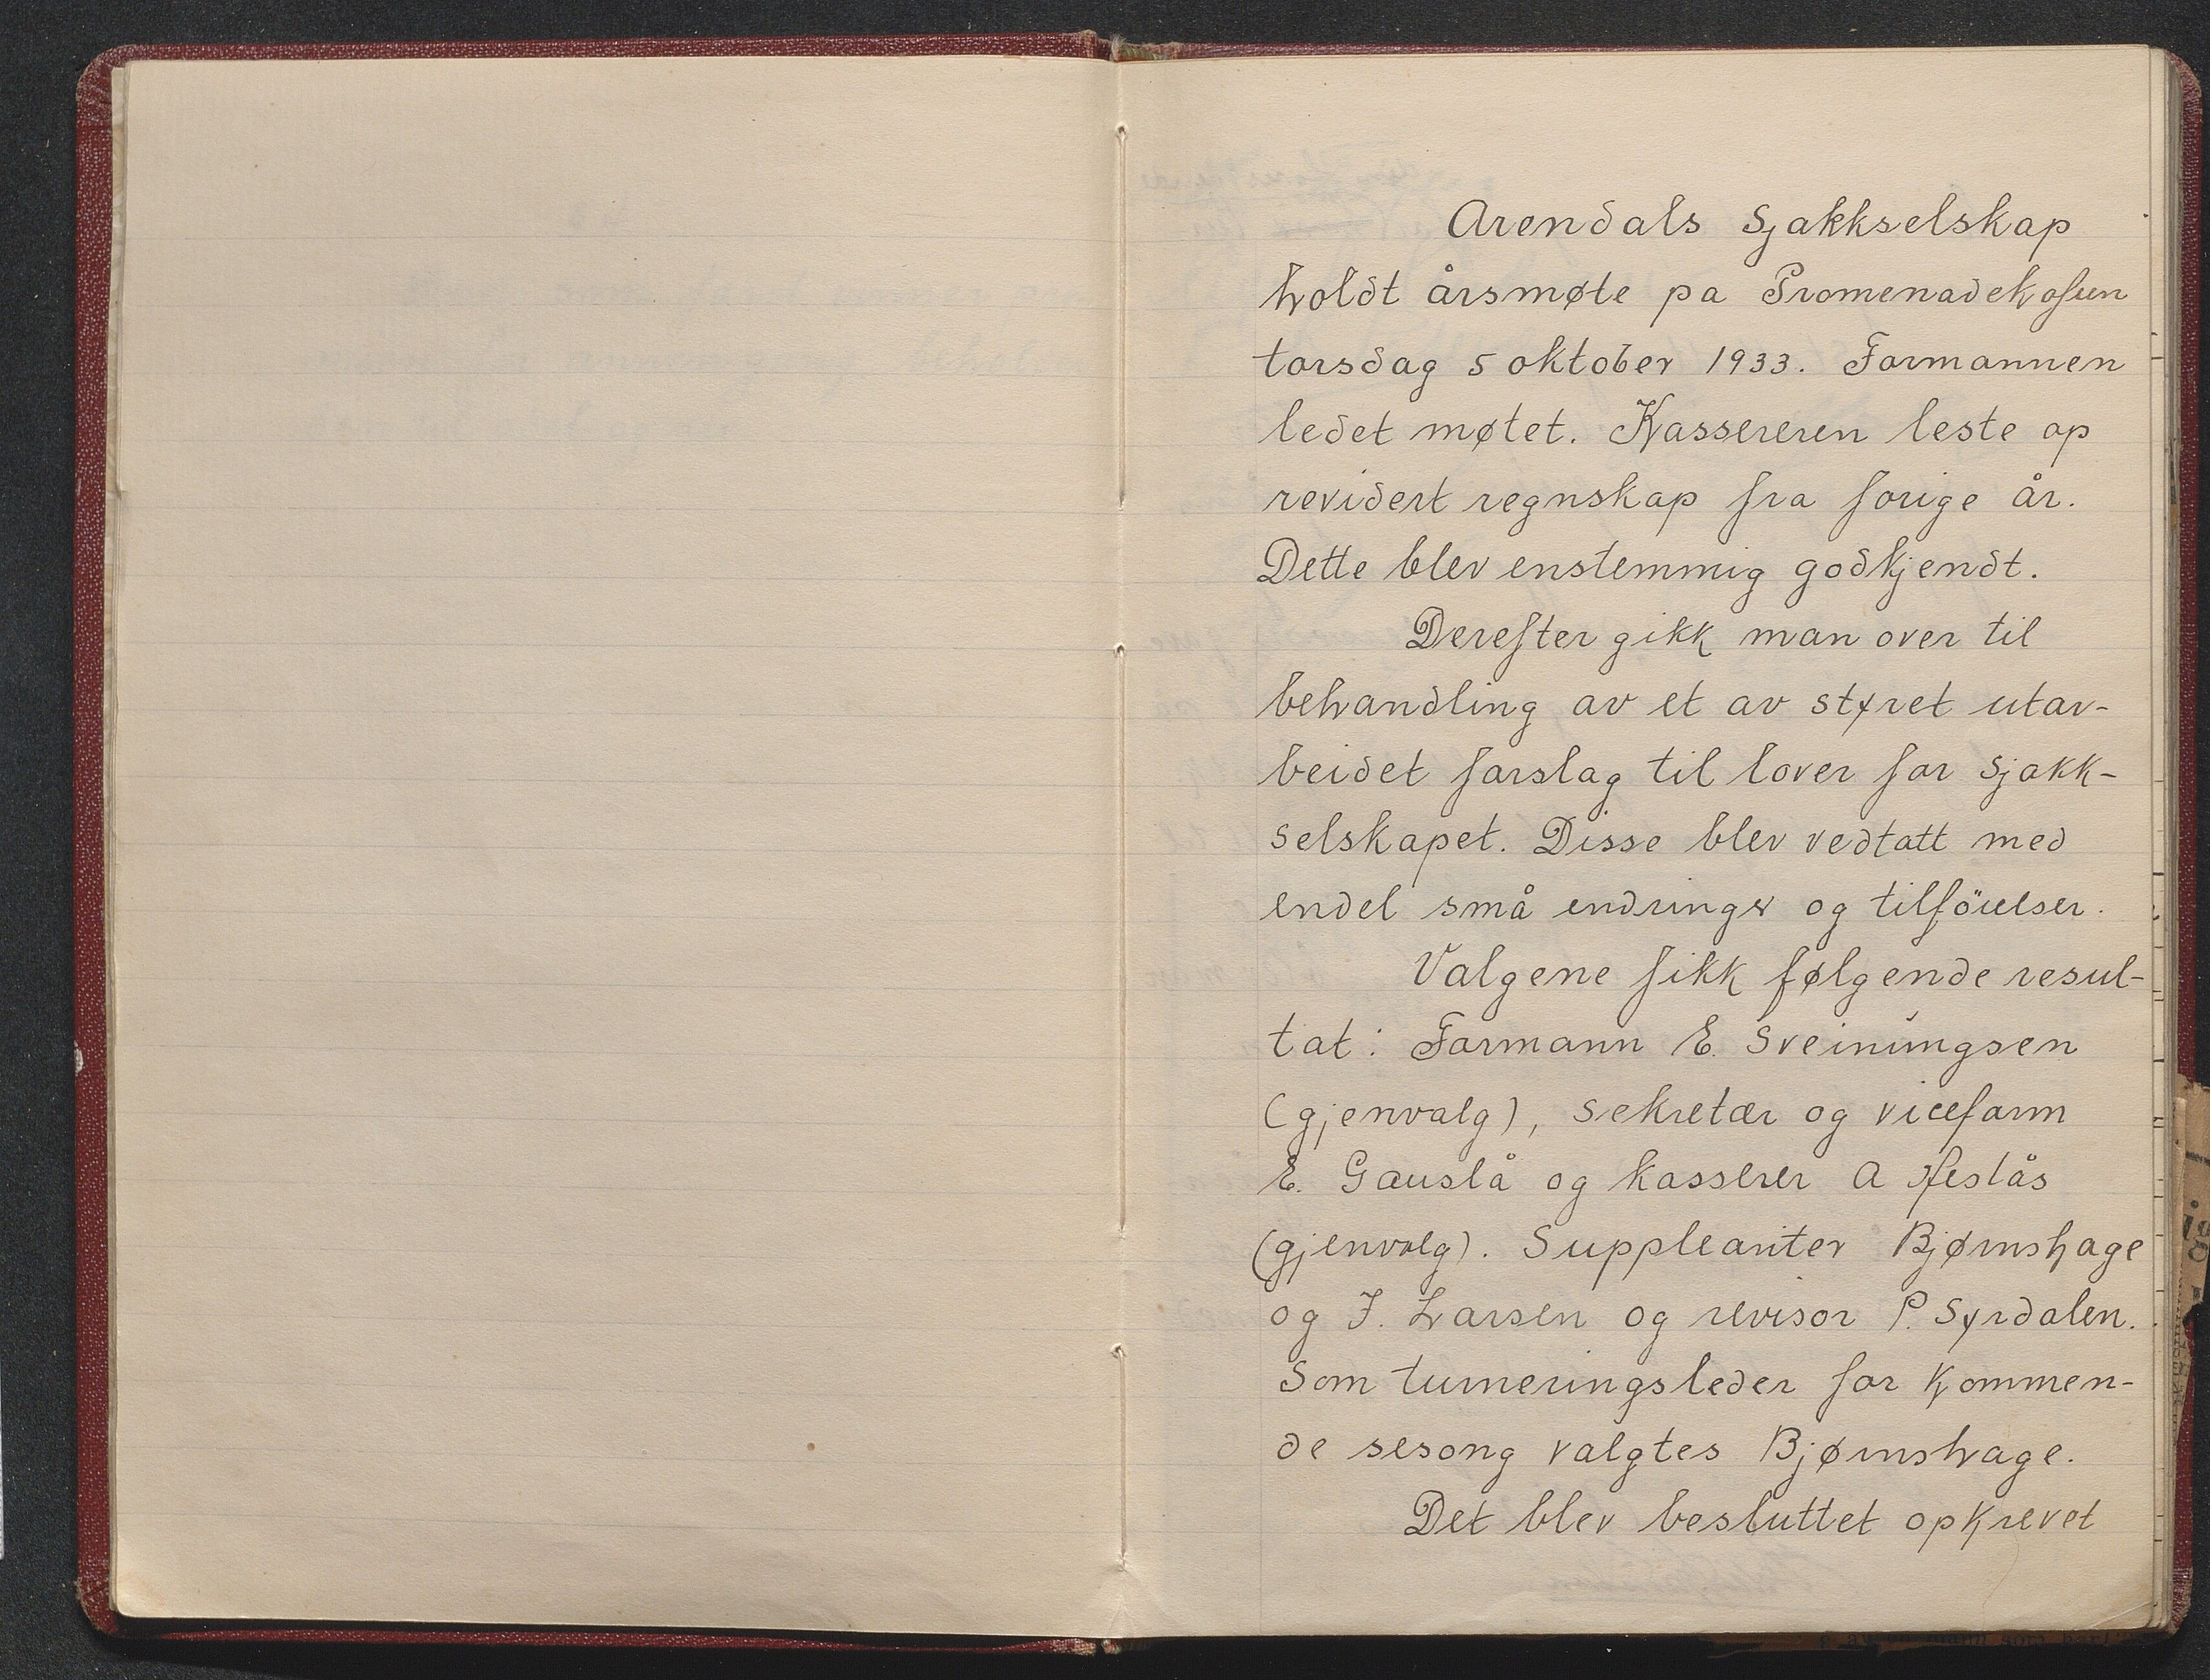 Arendals Sjakkselskap
holdt årsmøte pa Promenadekafeen
torsdag 5 oktober 1933. Formannen
ledet møtet. Kassereren leste op
revidert regnskap fra forige år.
Dette blev enstemmig godkjendt.
Derefter gikk man over til
behandling av et av styret utar-
beidet forslag til lover for sjakk-
selskapet. Disse blev vedtatt med
endel små endringer og tilföielser.
Valgene fikk følgende resul-
tat: Formann E. Sveinungsen
(gjenvalg), sekretær og viceform
E. Gauslå og kasserer A
(gjenvalg). Suppleanter Bjørnshage
og J. Larsen og revisor P. Syrdalen.
Som turneringsleder for kommen-
de sesong valgtes Bjørnshage.
Det blev besluttet opkrevet